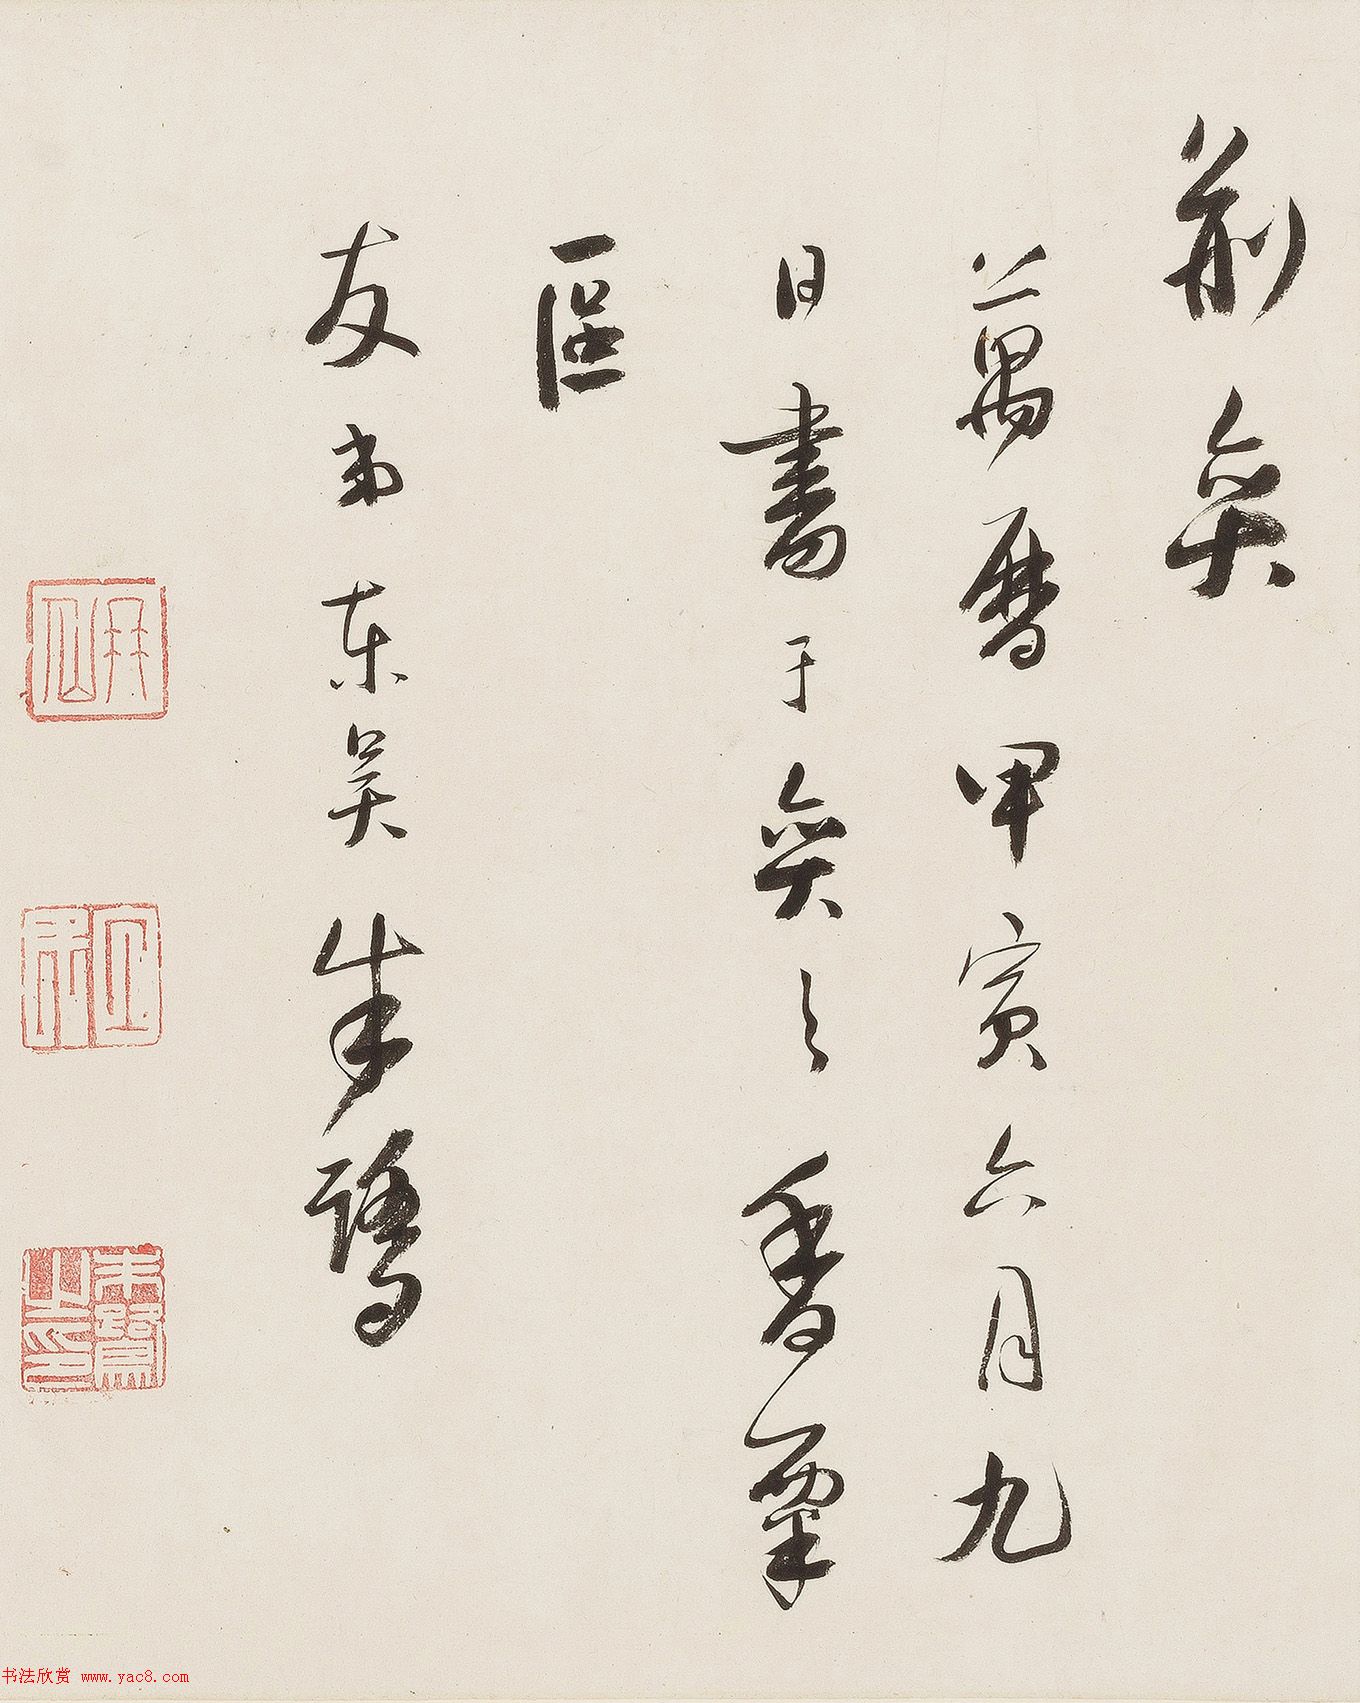 前奕
萬曆甲寅六月九
日書于奕之香粟
友弟東吳朱鷺
朱鷺之印
书法欣赏 www.yac8.com